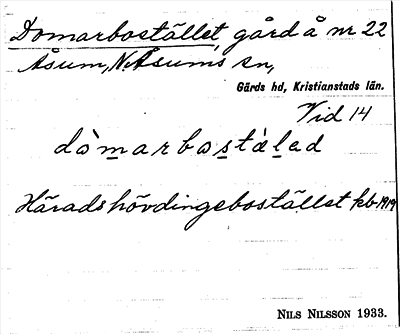 Domarbostället, gård å nr 22
Åsum, N. Åsums sn,
Gärds hd, Kristianstads län.
Vid 14
dòmarbostὰlad
Häradshövdingebostället kb 1919
NILS NILSSON 1933.